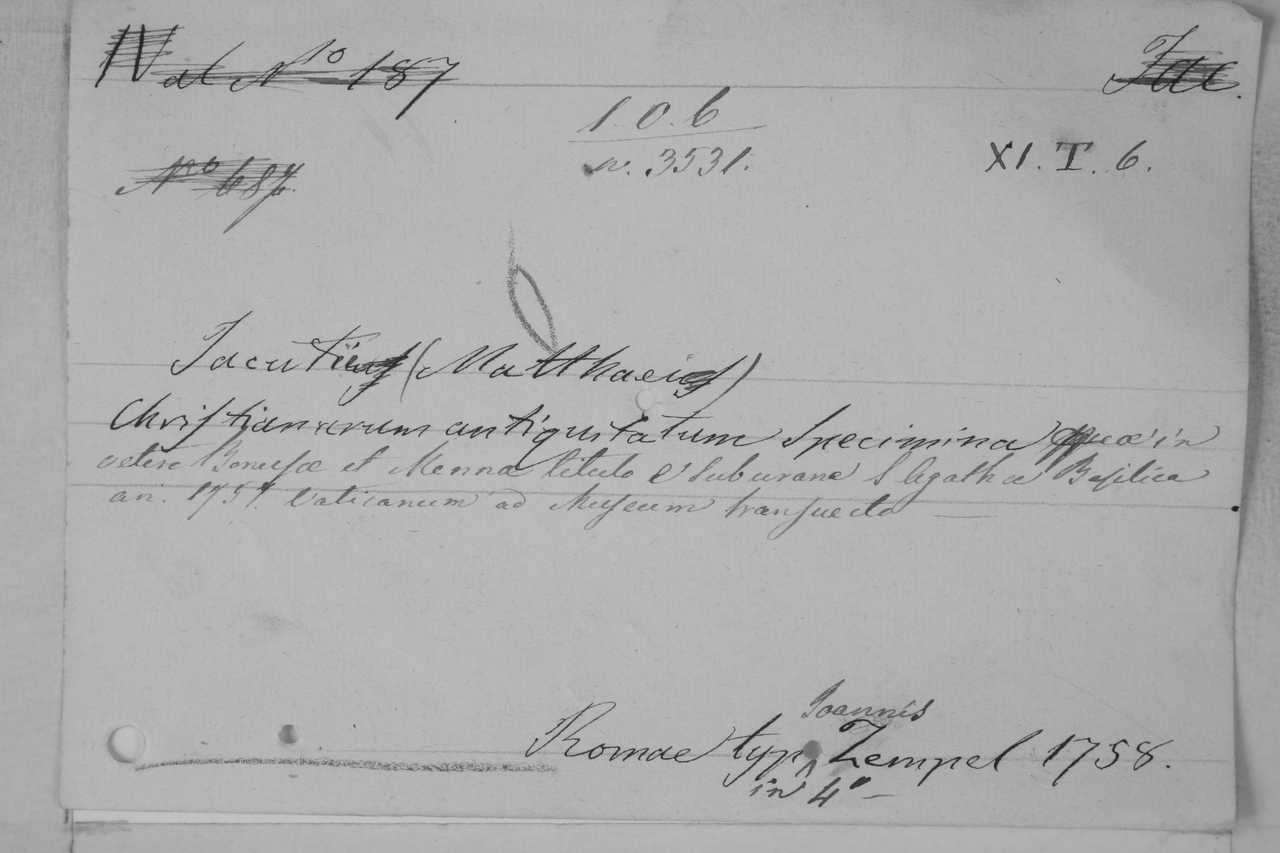 Nal No 187
Jac.
1.0.6
n. 3531.
XI. T. 6.
No 687.
Jacutii (Matthaei)
Christianarum antiquitatum Specimina quae in
vetere Bonusae et Menna titulo e Suburane S Agathae Basilica
an. 1757. Vaticanum ad Museum transuecto —
Joannis
Romae typ Zempel 1758.
in 4° —